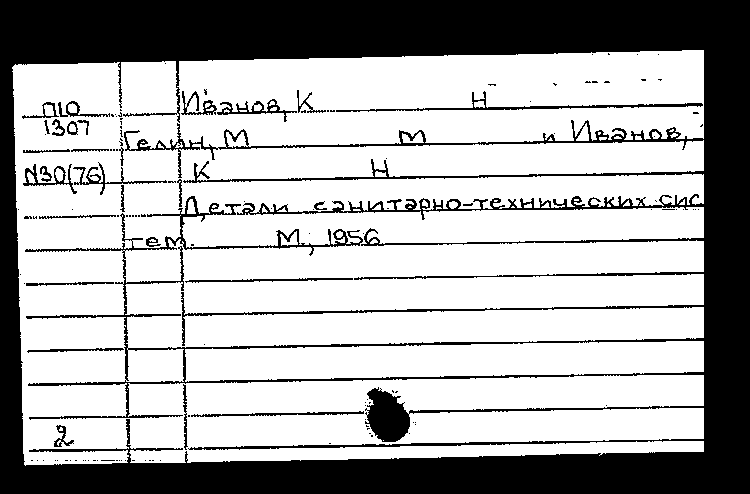 Иванов, К Н
П10
1307
Гелин, М М и Иванов,
N30(76)
К Н
Детали санитарно-технических сис
тем. М., 1956
2